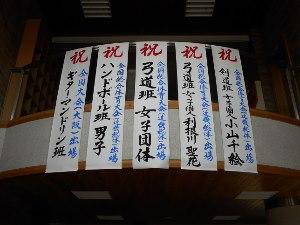 祝
全国総合体育大会(近畿総体)出場
剣道班 女子個人 小山千絵
祝
全国総合体育大会(近畿総体)出場
弓道班 女子個人 利根川聖花
祝
全国総合体育大会(近畿総体)出場
弓道班 女子団体
祝
全国総合体育大会(近畿総体)出場
ハンドボール班 男子
祝
全国大会(大阪)出場
ギターマンドリン班